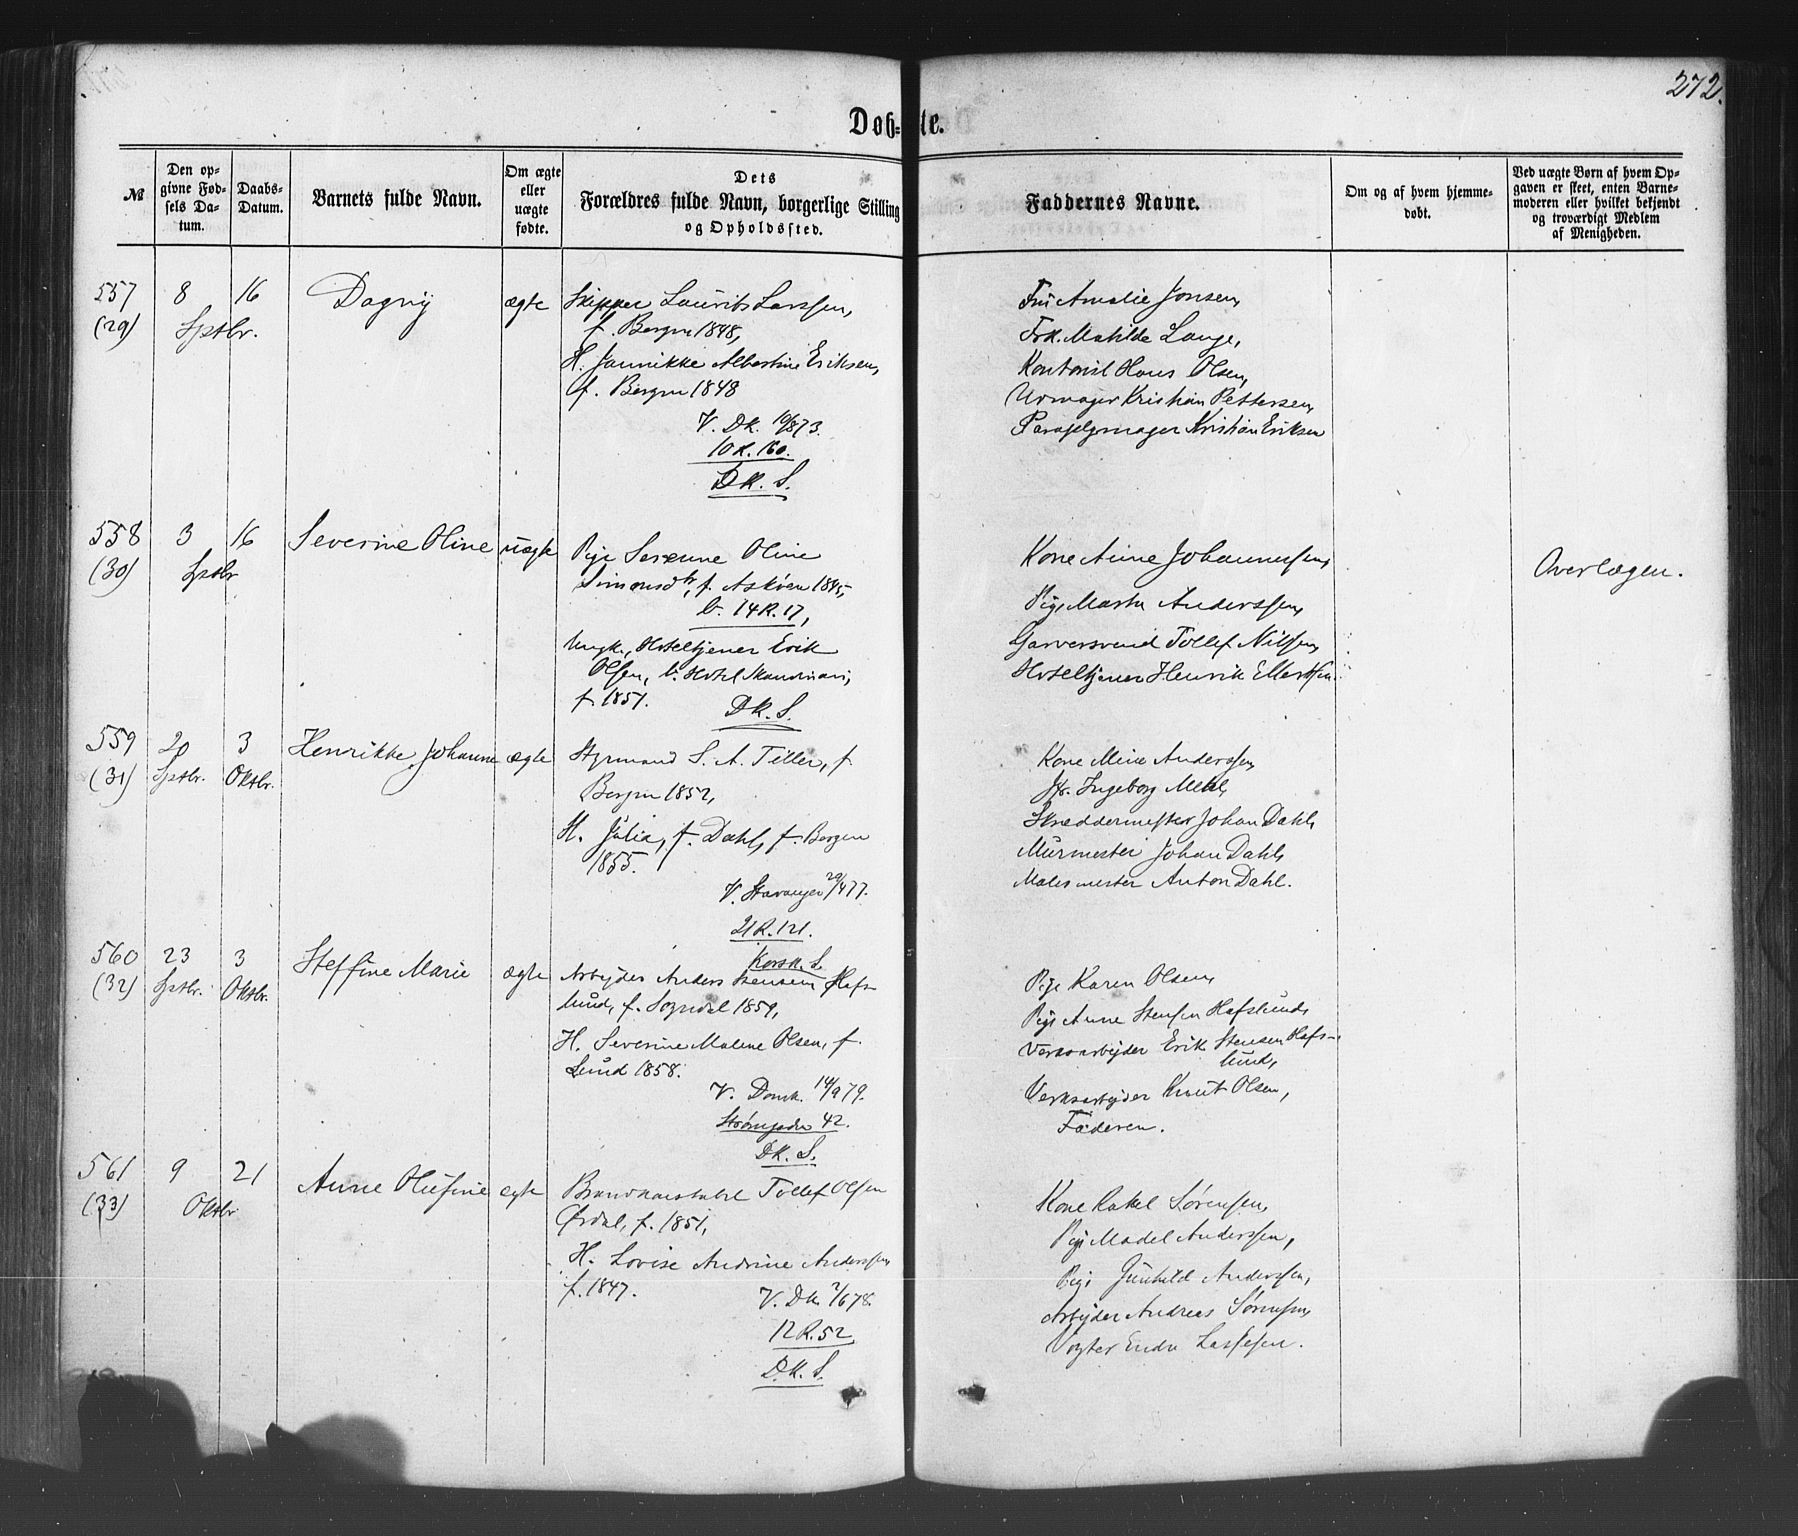 272.
Døb-te.
№
Den op-
givne Fød-
sels Da-
tum.
Daabs-
Datum.
Barnets fulde Navn.
Om ægte
eller
uægte
fødte.
Dets
Forældres fulde Navn, borgerlige Stilling
og Opholdssted.
Faddernes Navne.
Om og af hvem hjemme-
døbt.
Ved uægte Børn af hvem Op-
gaven er skeet, enten Barne-
moderen eller hvilket bekjendt
og troværdigt Medlem
af Menigheden.
557
(29)
8 16
Sptbr.
Dagny
ægte
Skipper Laurits Larssen,
f. Bergen 1848,
H. Jannikke Albertine Eriksen,
f. Bergen 1848
V. DK. 10/873.
10 R. 160.
DK. S.
Amalie Jonsen,
Frk. Matilde Lange,
Kontorist Hans Olsen,
Urmager Kristian Pettersen,
Paraplymager Kristian Eriksen
558
(30)
3 16
Sptbr
Severine Oline
uægte
Pige Serenne Oline
Simonsdtr, f. Askøen 1845,
b. 14 R. 17,
Ungk., Hoteltjener Erik
Olsen, b. Hotel Skandinavi,
f 1851.
DK. S.
Kone Anne Johannessen,
Pige Marta Anderssen,
Garversvend Tollef Nilsen,
Hoteltjener Henrik Ellertsen.
Overlægen.
559
(31)
20
Sptbr.
3
Oktbr.
Henrikke Johanne
ægte
Styrmand S. A. Tiller, f.
Bergen 1852,
H. Julia, f. Dahl, f. Bergen
1855.
V. Stavanger 29/477.
21 R. 121.
Korsk. S.
Kone Mine Anderssen,
Jfr. Ingeborg Mehl,
Skræddermester Johan Dahl,
Murmester Johan Dahl,
Malermester Anton Dahl.
560
(32)
23
Sptbr.
3
Oktbr.
Steffine Marie
ægte
Arbejder Anders Stensen Hafs-
lund, f. Sogndal 1859,
H. Severine Malene Olsen, f.
Lund 1858.
V. Domk. 14/979.
Strømgaden 42.
DK. S.
Pige Karen Olsen,
Pige Anne Stensen Hafslund,
Verksarbejder Erik Stensen Hafs-
lund,
Verksarbejder Knut Olsen,
Faderen.
561
(33)
9 21
Oktbr
Anne Olufine
ægte
Brandkonstabel Tollef Olsen
Ørdal, f. 1851,
H. Lovise Andrine Anderssen,
f. 1847.
V. DK. 2/678.
12 R. 52
D.K. S.
Kone Rakel Sørensen,
Pige Madel Anderssen,
Pige Gunhild Anderssen,
Arbejder Andreas Sørensen,
Vogter Endre Lassesen.